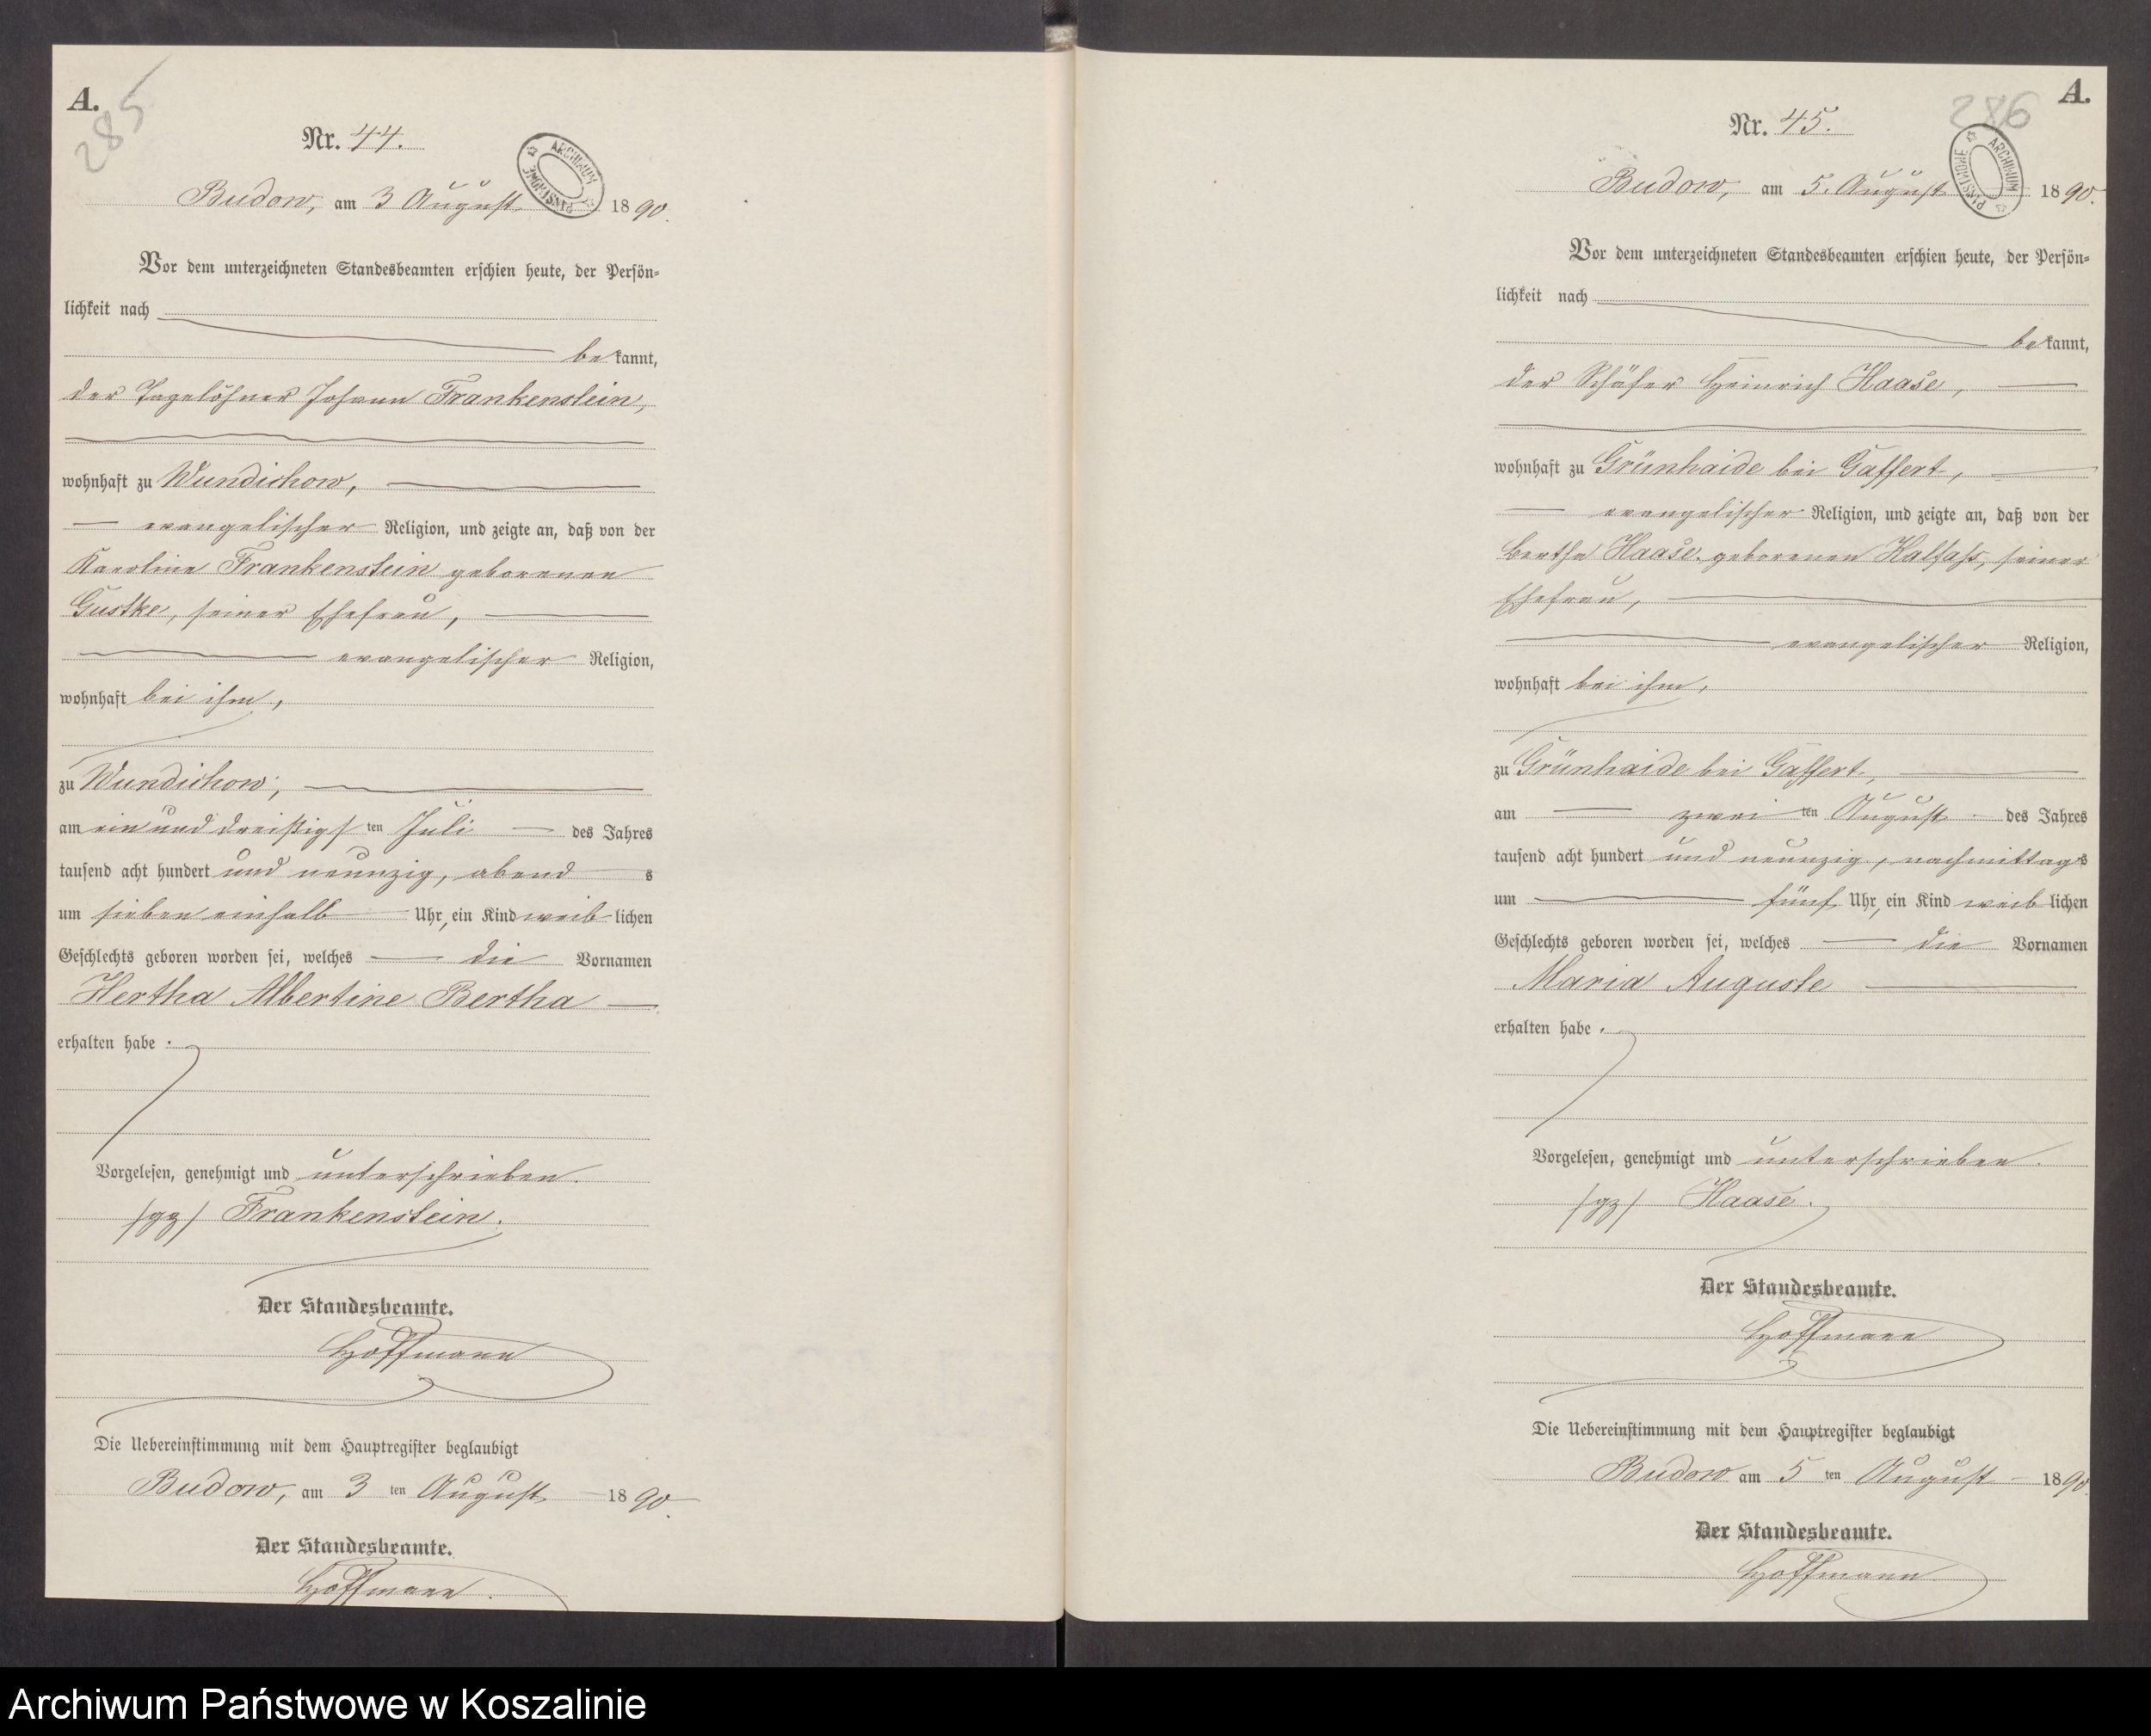 A.
285
Nr. 44.
ARCHIWUM PAŃSTWOWE
Budow, am 3 August 1890.
Vor dem unterzeichneten Standesbeamten erschien heute, der Persön=
lichkeit nach
bekannt,
der Tagelöhner Johann Frankenstein,
wohnhaft zu Wundichow,
evangelischer Religion, und zeigte an, daß von der
Karoline Frankenstein geborenen
Gustke, seiner Ehefrau,
evangelischer Religion,
wohnhaft bei ihm,
zu Wundichow,
am ein und dreißigsten Juli des Jahres
tausend acht hundert und neunzig, abends
um sieben einhalb Uhr, ein Kind weiblichen
Geschlechts geboren worden sei, welches die Vornamen
Hertha Albertine Bertha
erhalten habe.
Vorgelesen, genehmigt und unterschrieben.
/gz/ Frankenstein.
Der Standesbeamte.
Hoffmann
Die Uebereinstimmung mit dem Hauptregister beglaubigt
Budow, am 3 ten August 1890.
Der Standesbeamte.
Hoffmann.
A.
286
Nr. 45.
ARCHIWUM PAŃSTWOWE
Budow, am 5. August 1890.
Vor dem unterzeichneten Standesbeamten erschien heute, der Persön=
lichkeit nach
bekannt,
der Schäfer Heinrich Haase,
wohnhaft zu Grünhaide bei Gaffert,
evangelischer Religion, und zeigte an, daß von der
Bertha Haase geborenen seiner
Ehefrau,
evangelischer Religion,
wohnhaft bei ihm,
zu Grünhaide bei Gaffert,
am zweiten August des Jahres
tausend acht hundert und neunzig, nachmittags
um fünf Uhr, ein Kind weiblichen
Geschlechts geboren worden sei, welches die Vornamen
Maria Auguste
erhalten habe.
Vorgelesen, genehmigt und unterschrieben.
/gz/ Haase.
Der Standesbeamte.
Hoffmann
Die Uebereinstimmung mit dem Hauptregister beglaubigt
Budow am 5 ten August 1890.
Der Standesbeamte.
Hoffmann
Archiwum Państwowe w Koszalinie